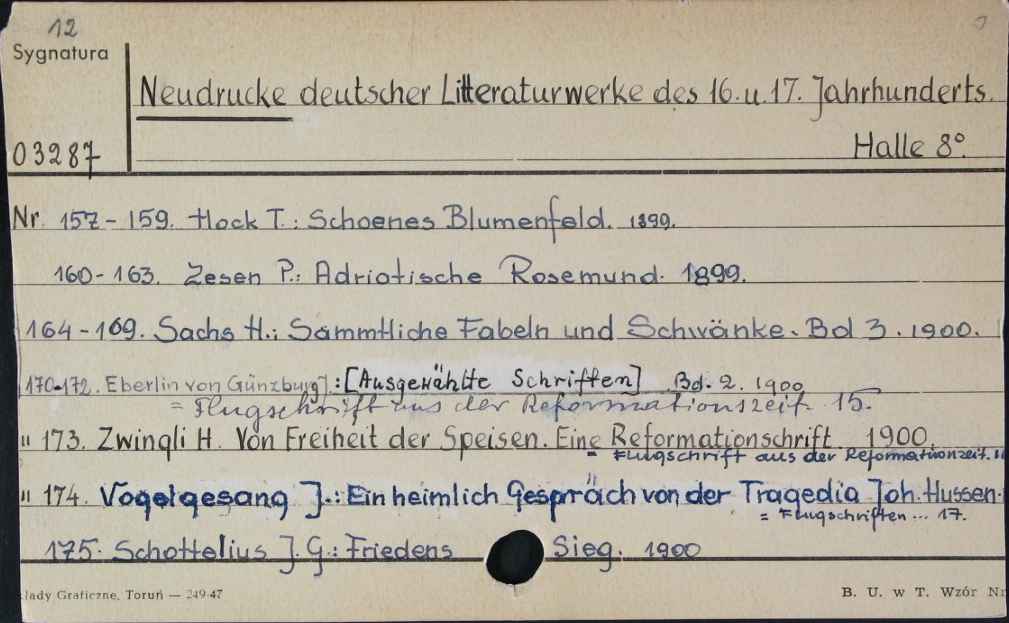 12
Sygnatura
Neudrucke deutscher Litteraturwerke des 16. u. 17. Jahrhunderts.
03287
Halle 8º.
Nr. 157-159. Hock T.: Schoenes Blumenfeld. 1899.
160-163. Zesen P.: Adriotische Rosemund. 1899.
164-169. Sachs H.: Sämmtliche Fabeln und Schwänke. Bd 3. 1900.
170-172. Eberlin von Günzburg]: [Ausgewählte Schriften] Bd. 2. 1900
= Flugschrift aus der Reformationszeit. 15.
" 173. Zwingli H. Von Freiheit der Speisen. Eine Reformationschrift. 1900.
= Flugschrift aus der Reformationzeit.
" 174. Vogelgesang J.: Ein heimlich Gespräch von der Tragedia Joh. Hussen.
= Flugschriften ... 17.
175. Schottelius J. G.: Friedens Sieg. 1900
łady Graficzne, Toruń — 249-47
B. U. w T. Wzór Nr